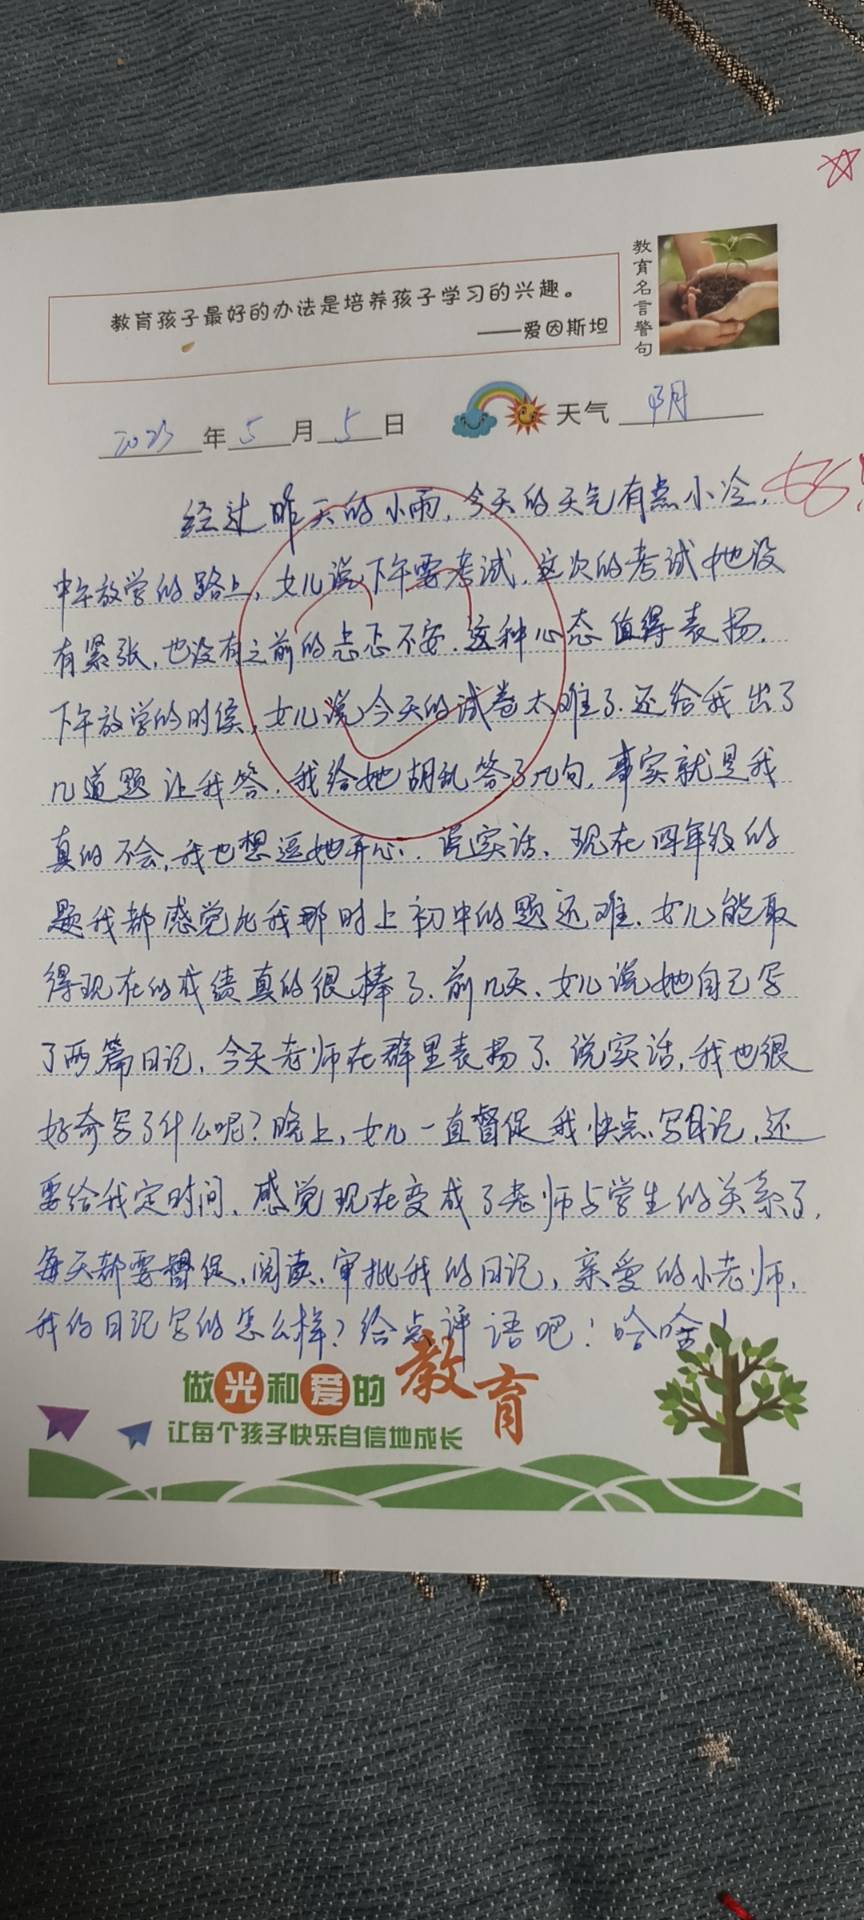 教育孩子最好的办法是培养孩子学习的兴趣。
——爱因斯坦
教育名言警句
2023年5月5日 天气 阴
经过昨天的小雨,今天的天气有点小冷,
好!
中午放学的路上,女儿说下午要考试,这次的考试她没
有紧张,也没有之前的忐忑不安,这种心态值得表扬.
下午放学的时侯,女儿说今天的试卷太难了.还给我出了
几道题让我答.我给她胡乱答了几句,事实就是我
真的不会,我也想逗她开心.说实话、现在四年级的
题我都感觉比我那时上初中的题还难.女儿能取
得现在的成绩真的很棒了.前几天、女儿说她自己写
了两篇日记,今天老师在群里表扬了、说实话,我也很
好奇写了什么呢?晚上,女儿一直督促我快点写日记,还
要给我定时间、感觉现在变成了老师与学生的关系了,
每天都要督促、阅读、审批我的日记,亲爱的小老师,
我的日记写的怎么样?给点评语吧!哈哈!
做光和爱的教育
让每个孩子快乐自信地成长